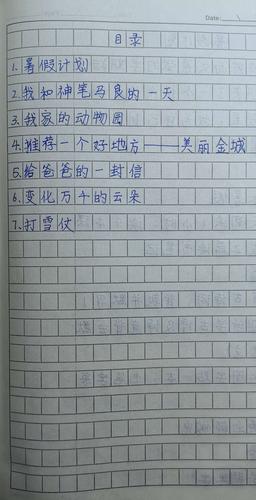 Date:
目录
1.暑假计划
2.我和神笔马良的一天
3.我家的动物园
4.推荐一个好地方——美丽金城
5.给爸爸的一封信
6.变化万千的云朵
7.打雪仗